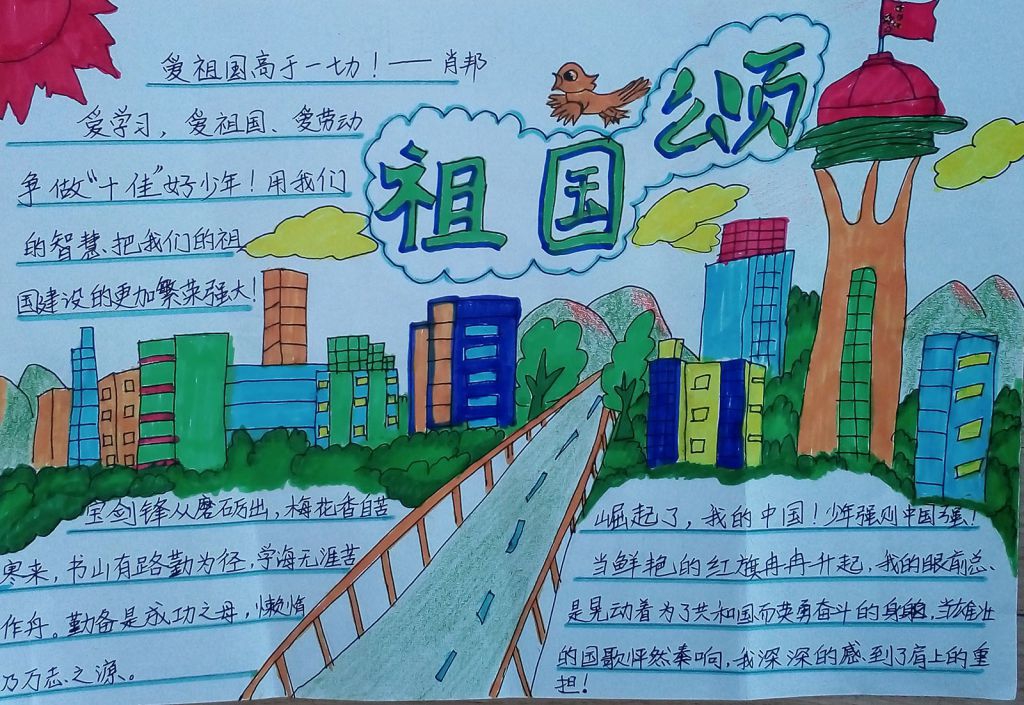 祖国颂
爱祖国高于一切！——肖邦
爱学习，爱祖国、爱劳动
争做“十佳”好少年！用我们
的智慧、把我们的祖
国建设的更加繁荣强大！
宝剑锋从磨砺出，梅花香自苦
寒来，书山有路勤为径，学海无涯苦
作舟。勤备是成功之母，懒惰
乃万恶之源。
崛起了，我的中国！少年强则中国强！
当鲜艳的红旗冉冉升起，我的眼前总
是晃动着为了共和国而英勇奋斗的身影，当雄壮
的国歌怦然奏响，我深深的感到了肩上的重
担！